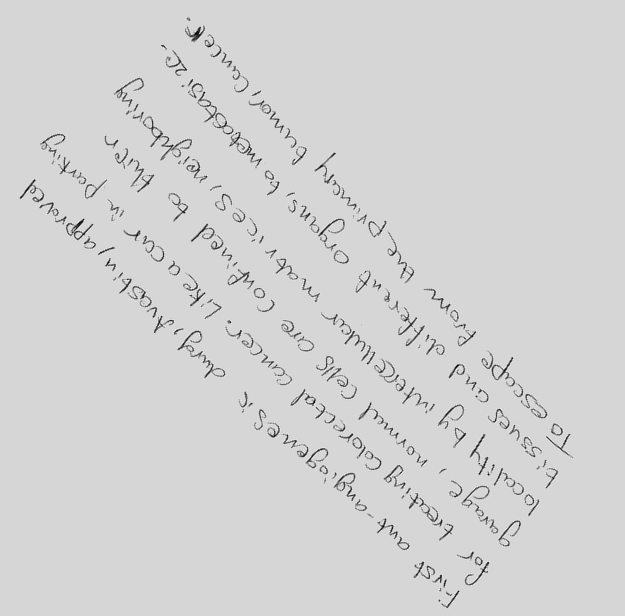 First ant-angiogenesic drug, Avastin, approved
for treating colorectal cancer. Like a car in parking
garage, normal cells are confined to thier
locality by intercellular matrices, neighboring
tissues and different organs, to metastasize.
To escape from the primary tumor, cancer.